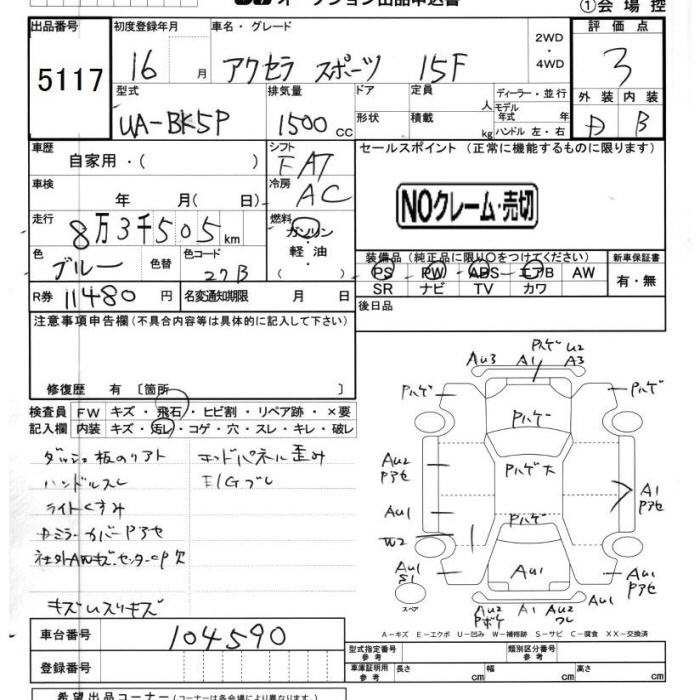 オークション出品申込書 ①会場控
出品番号 初度登録年月 車名・グレード 2WD ・ 4WD 評価点
5117 16 月 アクセラ スポーツ 15F 3
型式 排気量 ドア 定員 人 ディーラー・並行 外装 内装
UA-BK5P 1500 cc 形状 積載 kg モデル年式 年 ハンドル 左・右 D B
車歴 自家用・( ) シフト FAT セールスポイント (正常に機能するものに限ります)
車検 年 月( 日) 冷房 AC
NOクレーム・売切
走行 8万3千505km 燃料 ガソリン・軽油・( )
色 ブルー 色替 色コード 27B 装備品 (純正品に限り○をつけてください) 新車保証書
PS PW ABS エアB AW 有・無
SR ナビ TV カワ
R券 11480 円 名変通知期限 月 日 後日品
注意事項申告欄(不具合内容等は具体的に記入して下さい)
修復歴 有 〔箇所 〕
検査員 FW キズ・飛石・ヒビ割・リペア跡・×要
記入欄 内装 キズ・汚レ・コゲ・穴・スレ・キレ・破レ
ダッシュ板のリフト
ハンドルスレ
ライトくすみ
ドミラーカバーPアセ
社外AWキズ・センターCP欠
キズUスリキズ
エンドパネル歪み
E/Gブレ
Pハゲ U2
Au3 A1 A3
Pハゲ Pハゲ
Pハゲ
Au2 Pアセ Pハゲ大
A1 Pアセ
Au1 Pハゲ
W2
Au1 S1 Au1 Au1 Pアセ
スペア Au2 Pボケ A1 Au2 ワレ
A-キズ E-エクボ U-凹み W-補修跡 S-サビ C-腐食 XX-交換済
車台番号 104590 型式指定番号 参考 類別区分番号 参考
登録番号 車庫証明用 参考 長さ cm 幅 cm 高さ cm
希望出品コーナー (コーナーは各会場により異なります。)